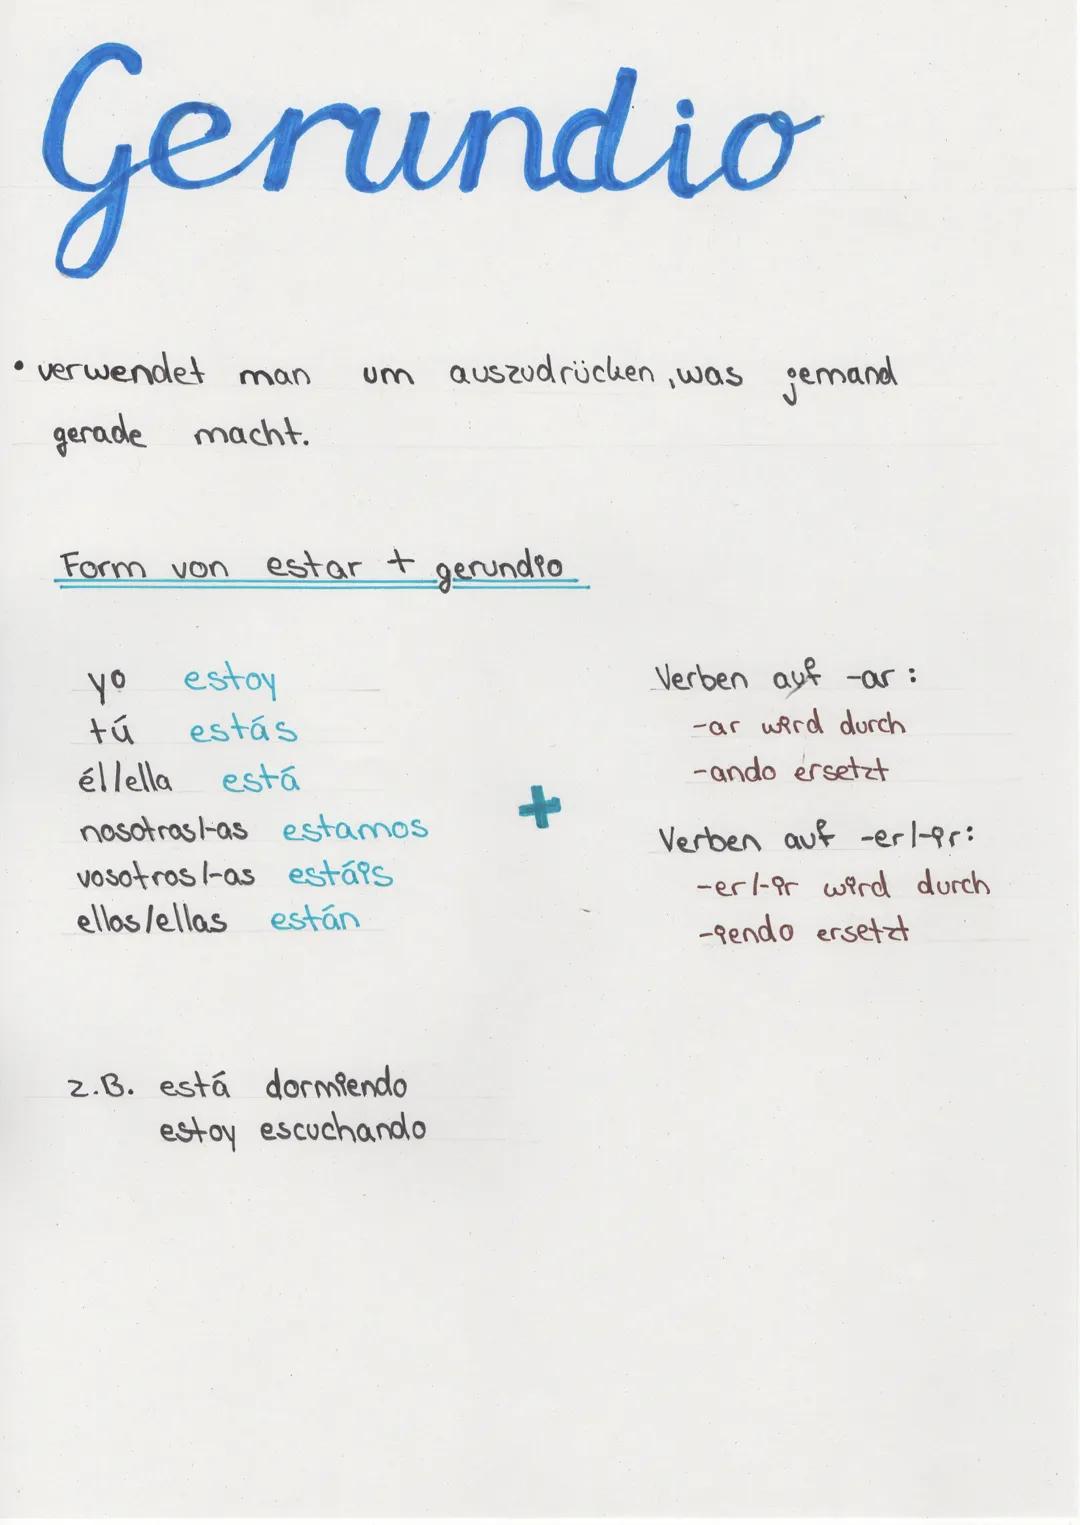 Gerundio
• verwendet man um auszudrücken, was jemand
gerade macht.
Form von estar + gerundio
yo estoy
tú estás
él/ella está
nosotros/-as estamos
vosotros/-as estáis
ellos/ellas están
+
Verben auf -ar:
-ar wird durch
-ando ersetzt
Verben auf -er/-ir:
-er/-ir wird durch
-iendo ersetzt
z.B. está dormiendo
estoy escuchando